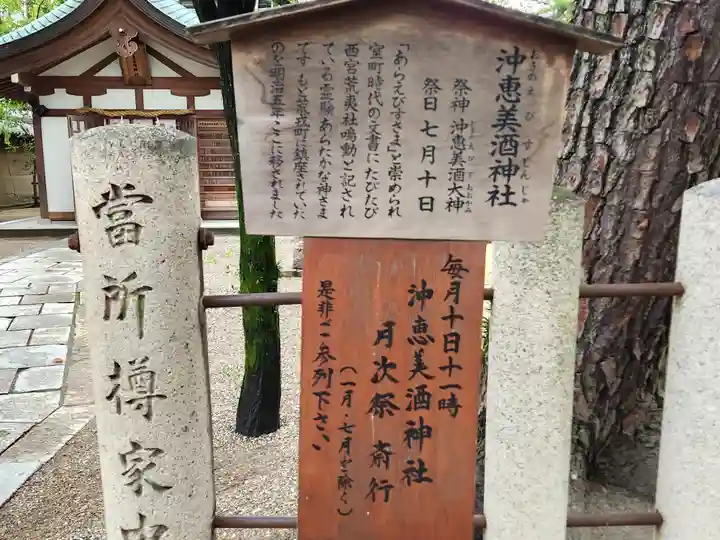 沖恵美酒神社
おきのえびすじんじゃ
祭神 沖恵美酒大神
おきのえびすおおかみ
祭日 七月十日
「あらえびすさま」と崇められ
室町時代の文書にたびたび
西宮荒夷社鳴動と記され
ている霊験あらたかな神さま
です もと荒戎町に鎮座されていた
のを明治五年ここに移されました
毎月十日十一時
沖恵美酒神社
月次祭 斎行
（一月・七月を除く）
是非ご参列下さい
當所樽家中